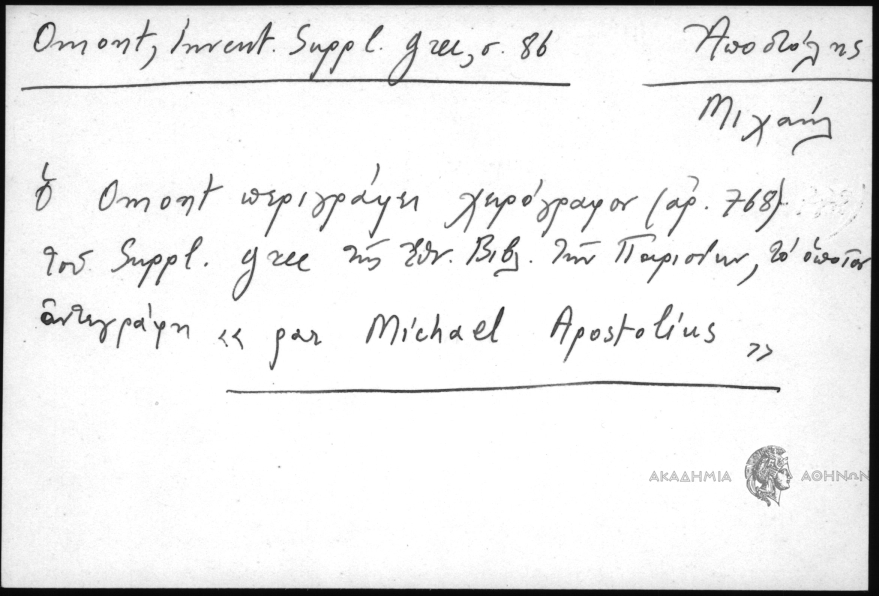 Omont, Invent. Suppl. grec, σ. 86
Ἀποστόλης
Μιχαήλ
ὁ Omont περιγράφει χειρόγραφον (ἀρ. 768)
τοῦ Suppl. grec τῆς Ἐθν. Βιβλ. τῶν Παρισίων, τὸ ὁποῖον
ἀντεγράφη « par Michael Apostolius »
ΑΚΑΔΗΜΙΑ ΑΘΗΝΩΝ